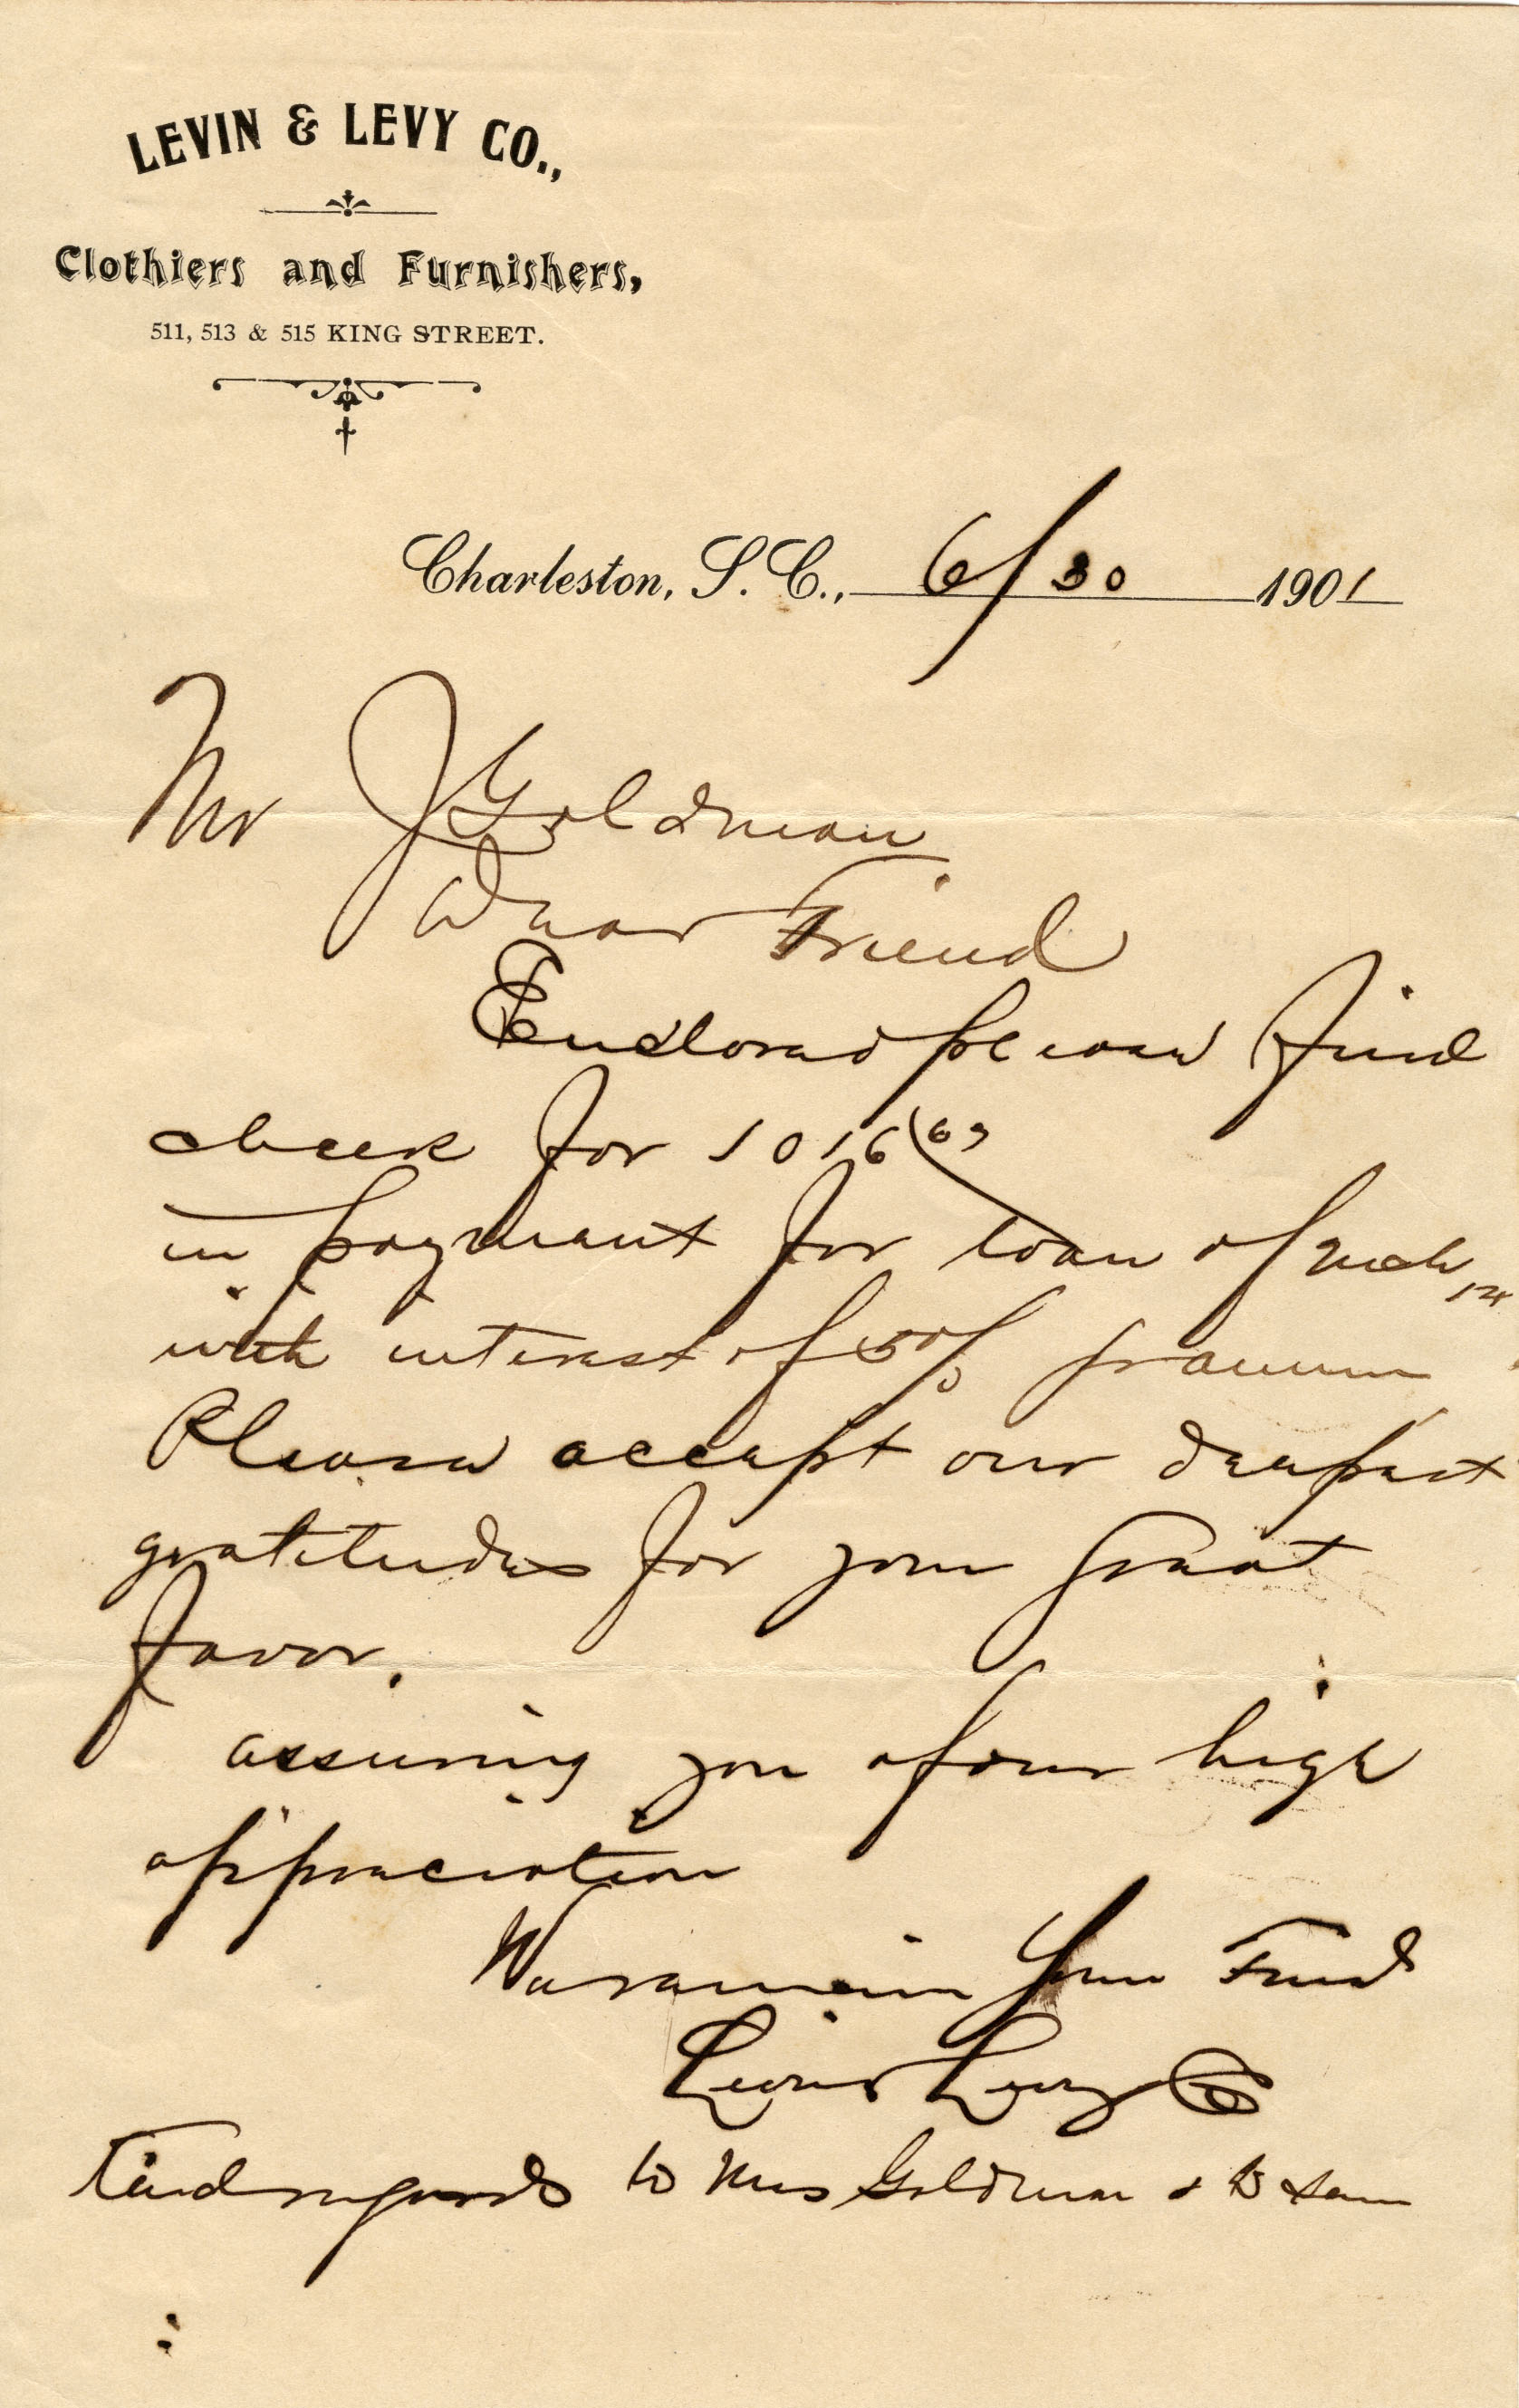 LEVIN & LEVY CO.,
Clothiers and Furnishers,
511, 513 & 515 KING STREET.
Charleston, S. C., 6/30 1901
Mr J Goldman
Dear Friend
Enclosed please find
check for 1016
in payment for loan of Mch 14
with interest of 5% pr annum
Please accept our deepest
gratitudes for your great
favor.
assuring you of our high
appreciation
We remain Your Friend
Levin & Levy Co
Kind regards to Mrs Goldman & to Sam